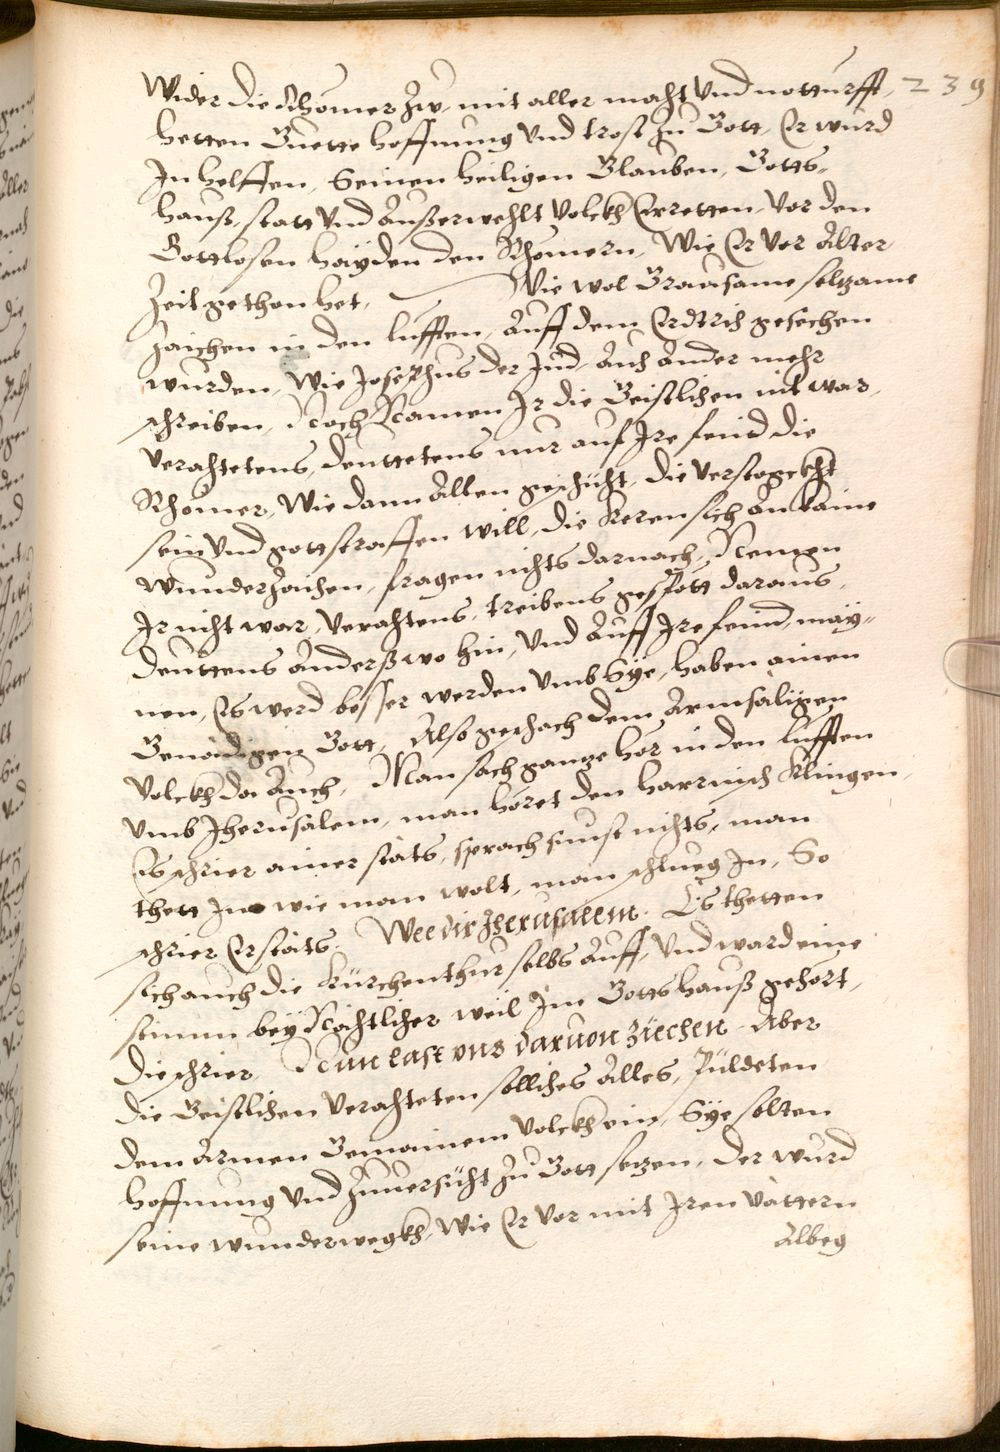 Wider die Rhömer zw, mit aller macht Vnd notturfft, 239
hetten Guette hoffnung Vnd trost zu Gott, Er wurd
In helffen, Seinen heiligen Glauben, Gotts-
hauß, statt Vnd Außerwehlt Volckh Erretten, Vor den
Gottlosen hayden den Rhömern, Wie Er Vor Alter
Zeit gethon het, Wie wol Grausame seltzame
Zaichen in den lufften, Auff dem Erdtrich gesechen
wurden, Wie Josephus der Jud, Auch Ander mehr
schreiben, Noch Namen Ir die Geistlichen nit war,
Verachtetens, deuttetens nur auf Ire feind die
Rhömer, Wie dann Allen geschücht, die Verstogckht
sein Vnd gott straffen will, die Keren sich An kaine
wunderzaichen, fragen nichts darnach, Nemen
Ir nicht war, Verachtens, treibens gespött daraus,
deuttens Anderßwo hin, Vnd Auff Ire feind, may-
nen, Es werd besser werden Vmb Sye, haben ainen
Genädigen Gott, Also geschach dem Armsäligen
Volckh da Auch, Man sach gantze hör in den lufften
Vmb Jherusalem, man höret den harnisch Klingen,
Es schrier ainer stäts, sprach sunst nichts, man
thett Im wie man wolt, man schlueg In, So
schrier Er stäts. Wee dir Jherusalem. Es thetten
sich auch die Kürchenthur selbs Auff, Vnd ward eine
stimm bey Nächtlicher weil Im Gottshauß gehört,
die schrier, Nun last vns daruon ziechen. Aber
die Geistlichen Verachteten solliches Alles, Püldeten
dem Armen Gemainem Volckh ein, Sye solten
hoffnung Vnd Zuuersicht zu Gott setzen, der wurd
seine wunderwegkh, Wie Er Vor mit Iren Vättern
Albeg